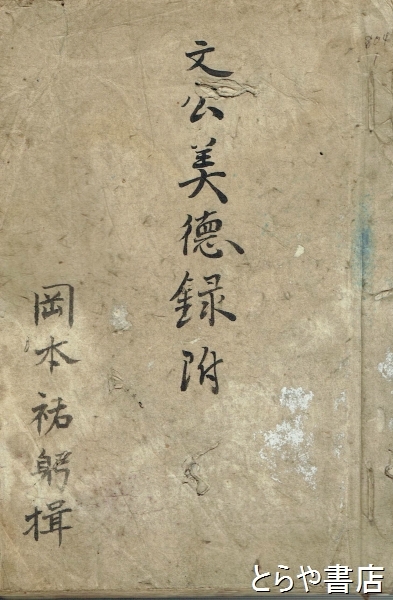 文公美德録附
岡本祐躬揖
とらや書店